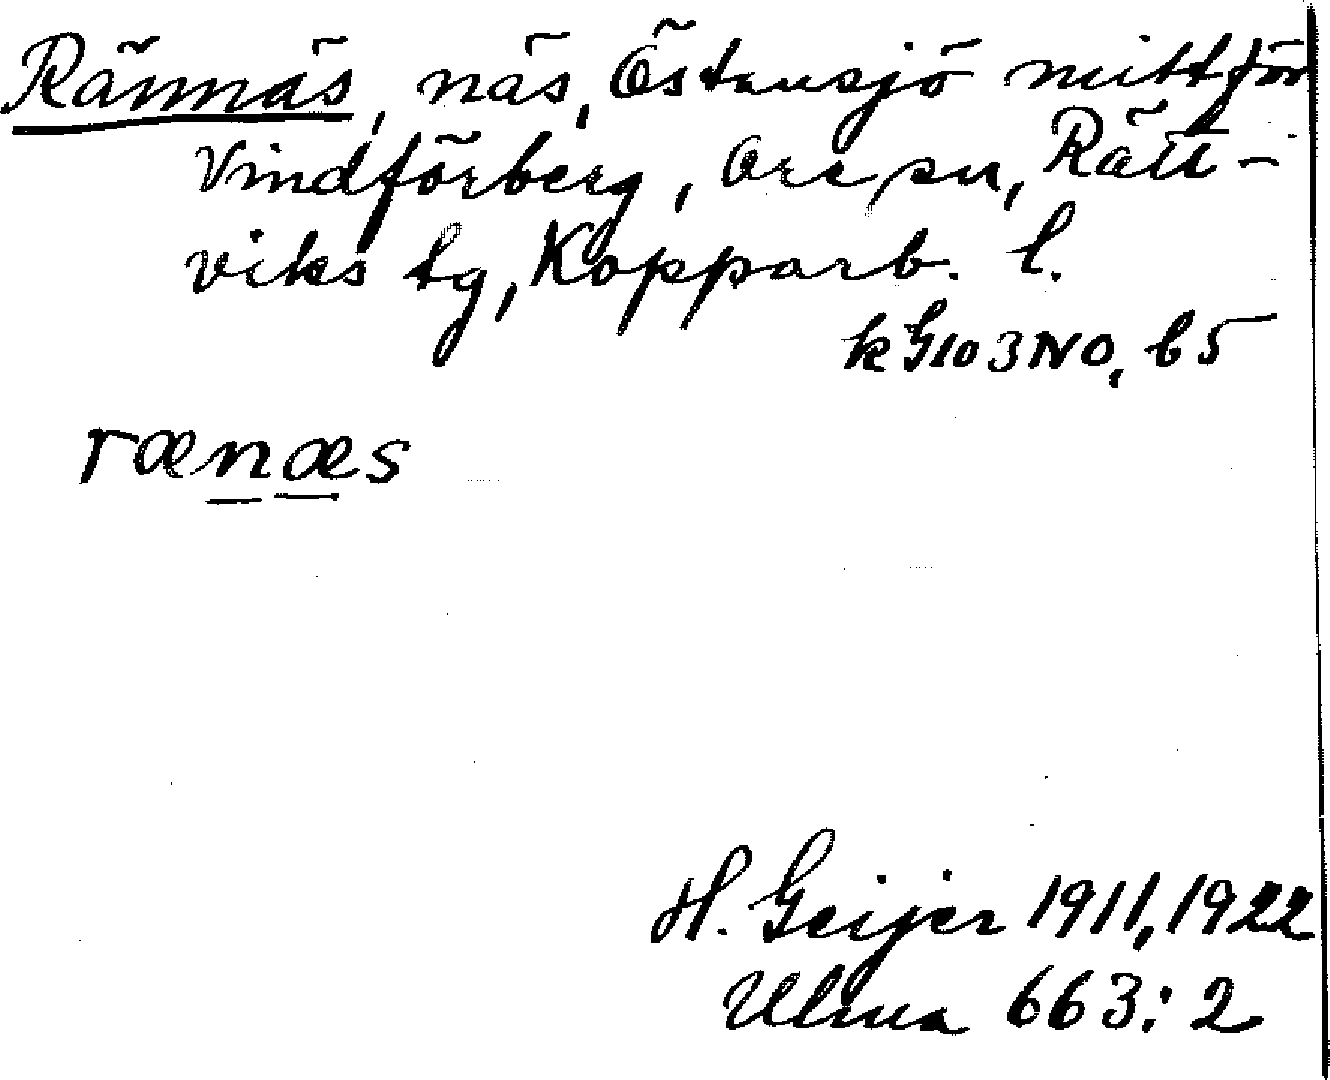 Rännäs, näs, Östansjö mittför
Vindförberg, Ore sn, Rätt-
viks tg, Kopparb. l.
k G103NO, b5
rænæs
H. Geijer 1911, 1922
Ulma 663:2